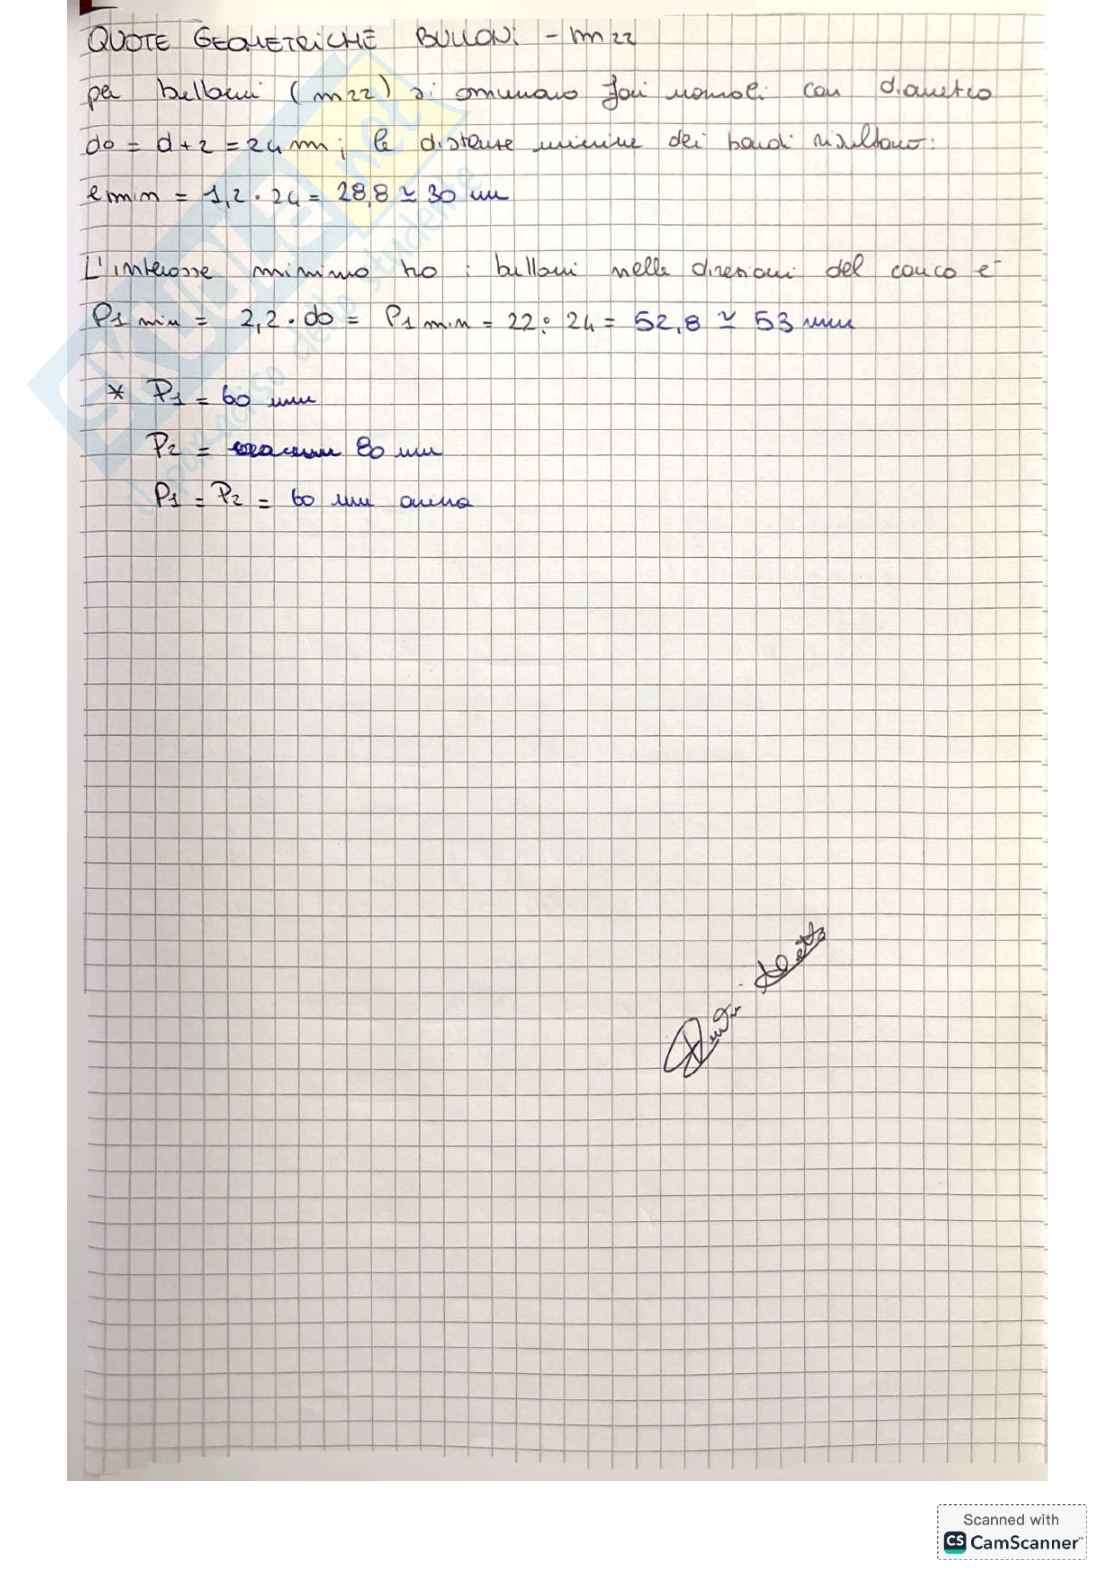 QUOTE GEOMETRICHE BULLONI - m22
per bulloni (m22) si assumono fori normali con diametro
do = d+2 = 24 mm; le distanze minime dei bordi risultano:
emin = 1,2 · 24 = 28,8 ≃ 30 mm
L'interasse minimo tra i bulloni nelle direzioni del carico è
P1 min = 2,2 · do = P1 min = 22 · 24 = 52,8 ≃ 53 mm
* P1 = 60 mm
P2 = 80 mm
P1 = P2 = 60 mm anima
Scanned with
CS CamScanner